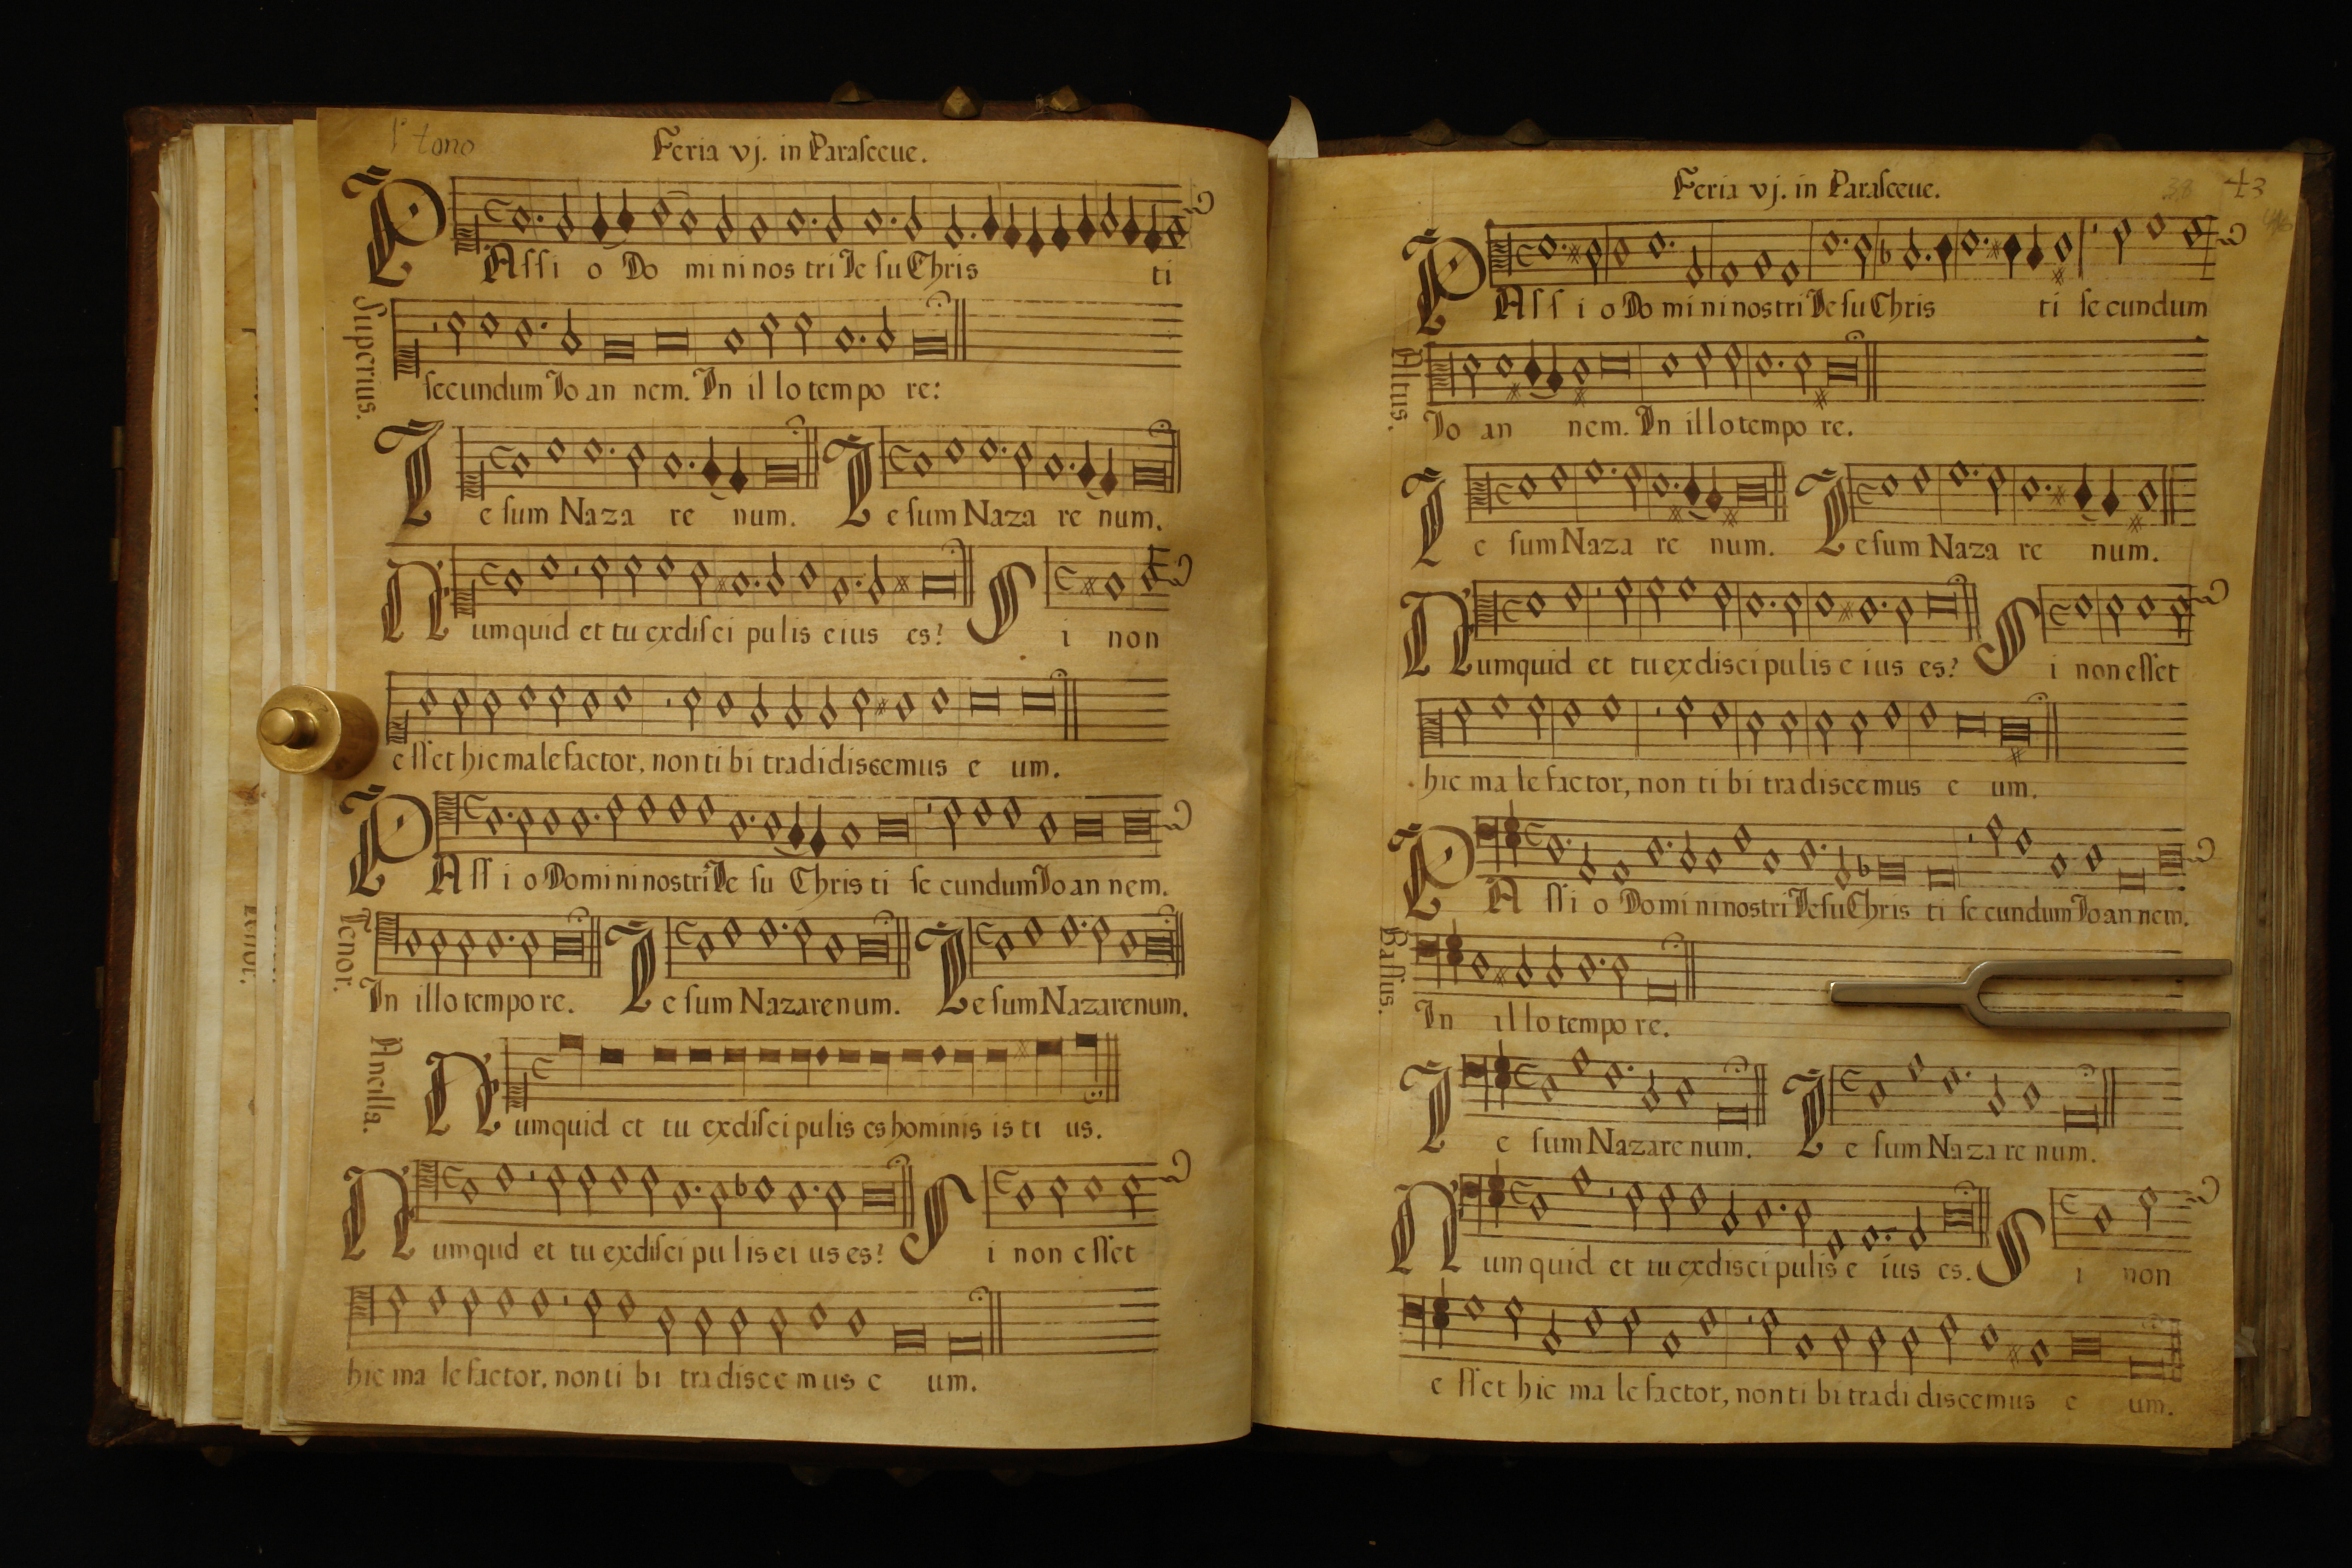 1º tono
Feria vj. in Paraſceue.
PAſſi o Do mi ni nos tri Ie ſu Chris ti
Superius.
ſecundum Io an nem. In il lo tem po re:
Ie ſum Naza re num. Ie ſum Naza re num.
Numquid et tu ex diſci pu lis e ius es? Si non
e ſſet hic male factor, non ti bi tradidiscemus e um.
PAſſi o Domini nostri Ie ſu Chris ti ſe cundum Io an nem.
Tenor.
In illo tempo re. Ie ſum Nazarenum. Ie ſum Nazarenum.
Ancilla.
Numquid et tu ex diſci pu lis es hominis is ti us.
Numqud et tu ex diſci pu lis ei us es? Si non e ſſet
hic ma le factor, non ti bi tra disce mus e um.
Feria vj. in Paraſceue.
43
PAſſ i o Do mi ni nostri Ie ſu Chris ti ſe cundum
Altus.
Io an nem. In illo tempo re.
Ie ſum Naza re num. Ie ſum Naza re num.
Numquid et tu ex disci pu lis e ius es? Si non eſſet
hic ma le factor, non ti bi tra disce mus e um.
PA ſſi o Domi ni nostri Ie ſu Chris ti ſe cundum Io an nem.
Baſſus.
In il lo tempo re.
Ie ſum Nazare num. Ie ſum Naza re num.
Numquid et tu ex disci pulis e ius es. Si non
e ſſet hic ma le factor, non ti bi tradi discemus e um.